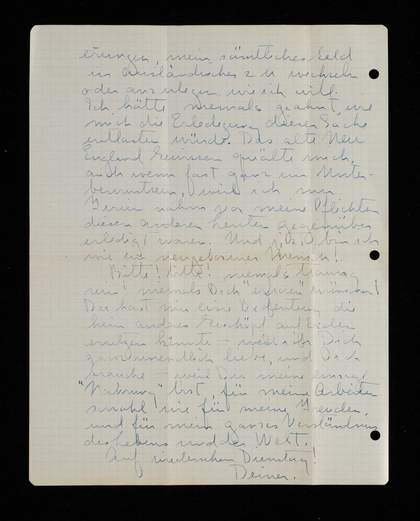 mein sämtliches Geld
in ausländisches zu wechseln
oder anzulegen wie ich will.
Ich hätte niemals geahnt wie
mich die Erledigung dieser Sache
entlasten würde. Das alte New
England quälte mich,
auch wenn fast ganz im Unter-
bewusstsein, weil ich
Ferien nahm vor meine Pflichten
diesen anderen Leuten gegenüber
erledigt waren. Und bin ich
wie ein neugeborener Mensch!
Bitte! bitte! niemals
sein! niemals Dich
Du hast mir eine die
kein anderes Geschöpf auf Erden
könnte – weil ich Dich
ganz unendlich liebe, und Dich
brauche – weil Du meine einzige
"Nahrung" bist, für meine Arbeiten
sowohl wie für meine Freuden,
und für mein ganzes Verständniss
des Lebens und der Welt.
Auf wiedersehen Dienstag!
Deiner.